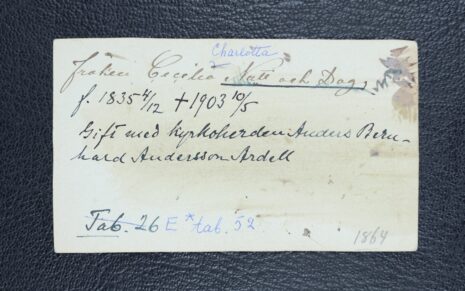 Charlotta
fröken Cecilia Natt och Dag,
f. 1835 4/12 † 1903 10/5
Gift med kyrkoherden Anders Bern-
hard Andersson Ardell
Tab. 26 E * tab. 52
1864